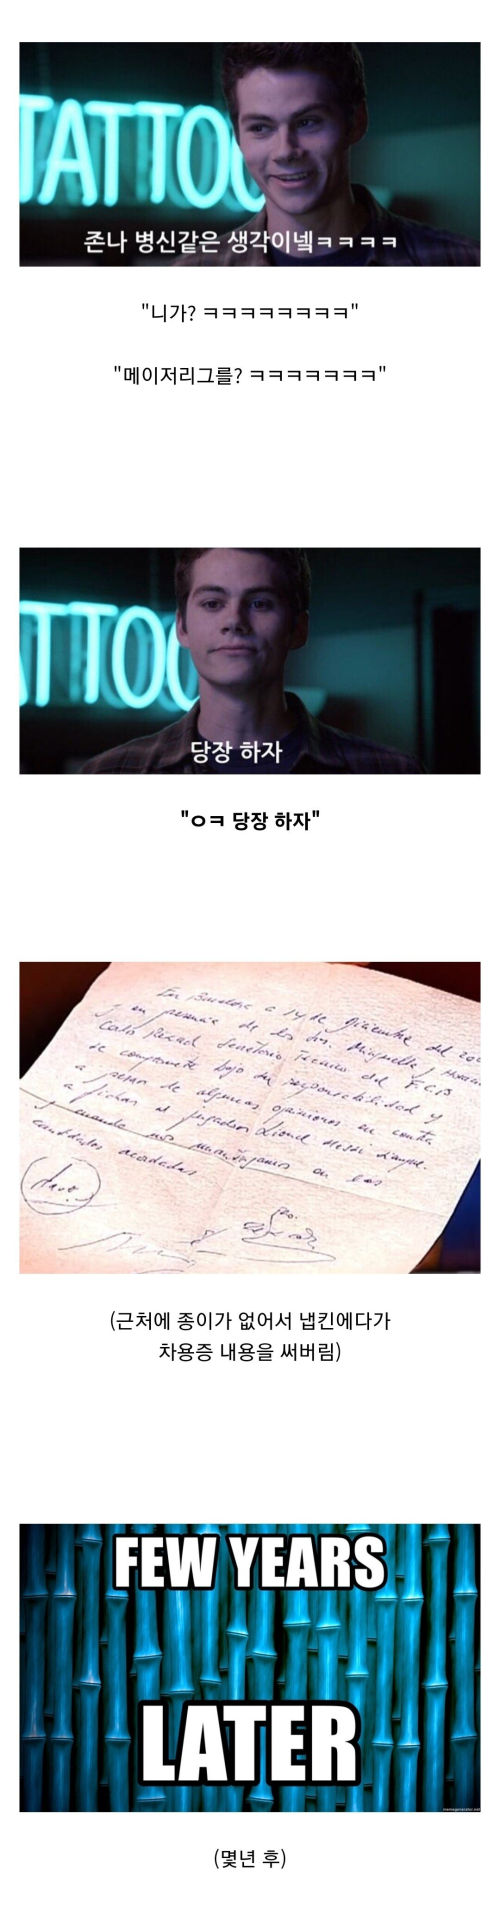 TATTOO
존나 병신같은 생각이넼ㅋㅋㅋㅋ
"니가? ㅋㅋㅋㅋㅋㅋㅋㅋ"
"메이저리그를? ㅋㅋㅋㅋㅋㅋㅋ"
TTOO
당장 하자
"ㅇㅋ 당장 하자"
En Barcelona a 14 de diciembre del 200
y en presencia de los Srs. Minguella y Horacio
Carlos Rexach Secretario Técnico del F.C.B
se compromete bajo su responsabilidad y
a pesar de algunas opiniones en contra
a fichar al jugador Lionel Messi
y cuando nos mantengamos en las
cantidades acordadas
(근처에 종이가 없어서 냅킨에다가
차용증 내용을 써버림)
FEW YEARS
LATER
memegenerator.net
(몇년 후)